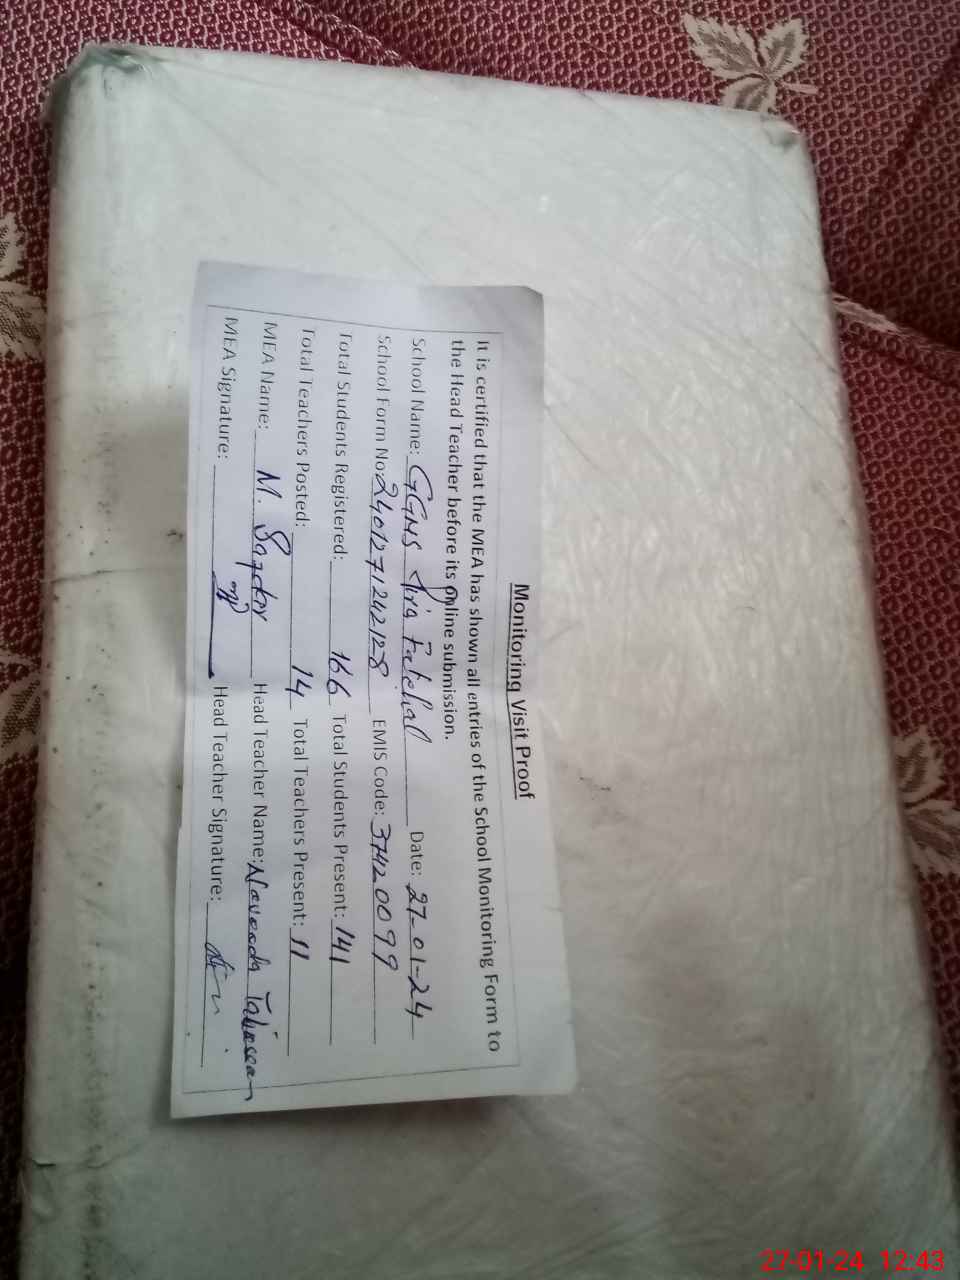 Monitoring Visit Proof
It is certified that the MEA has shown all entries of the School Monitoring Form to
the Head Teacher before its online submission.
School Name: GGMS Fatehal Date: 27-01-24
School Form No: 2401271242128 EMIS Code: 37420099
Total Students Registered: 166 Total Students Present: 141
Total Teachers Posted: 14 Total Teachers Present: 11
MEA Name: M. Safdar Head Teacher Name: Naveeda Tabassam
MEA Signature: Head Teacher Signature:
27-01-24 12:43